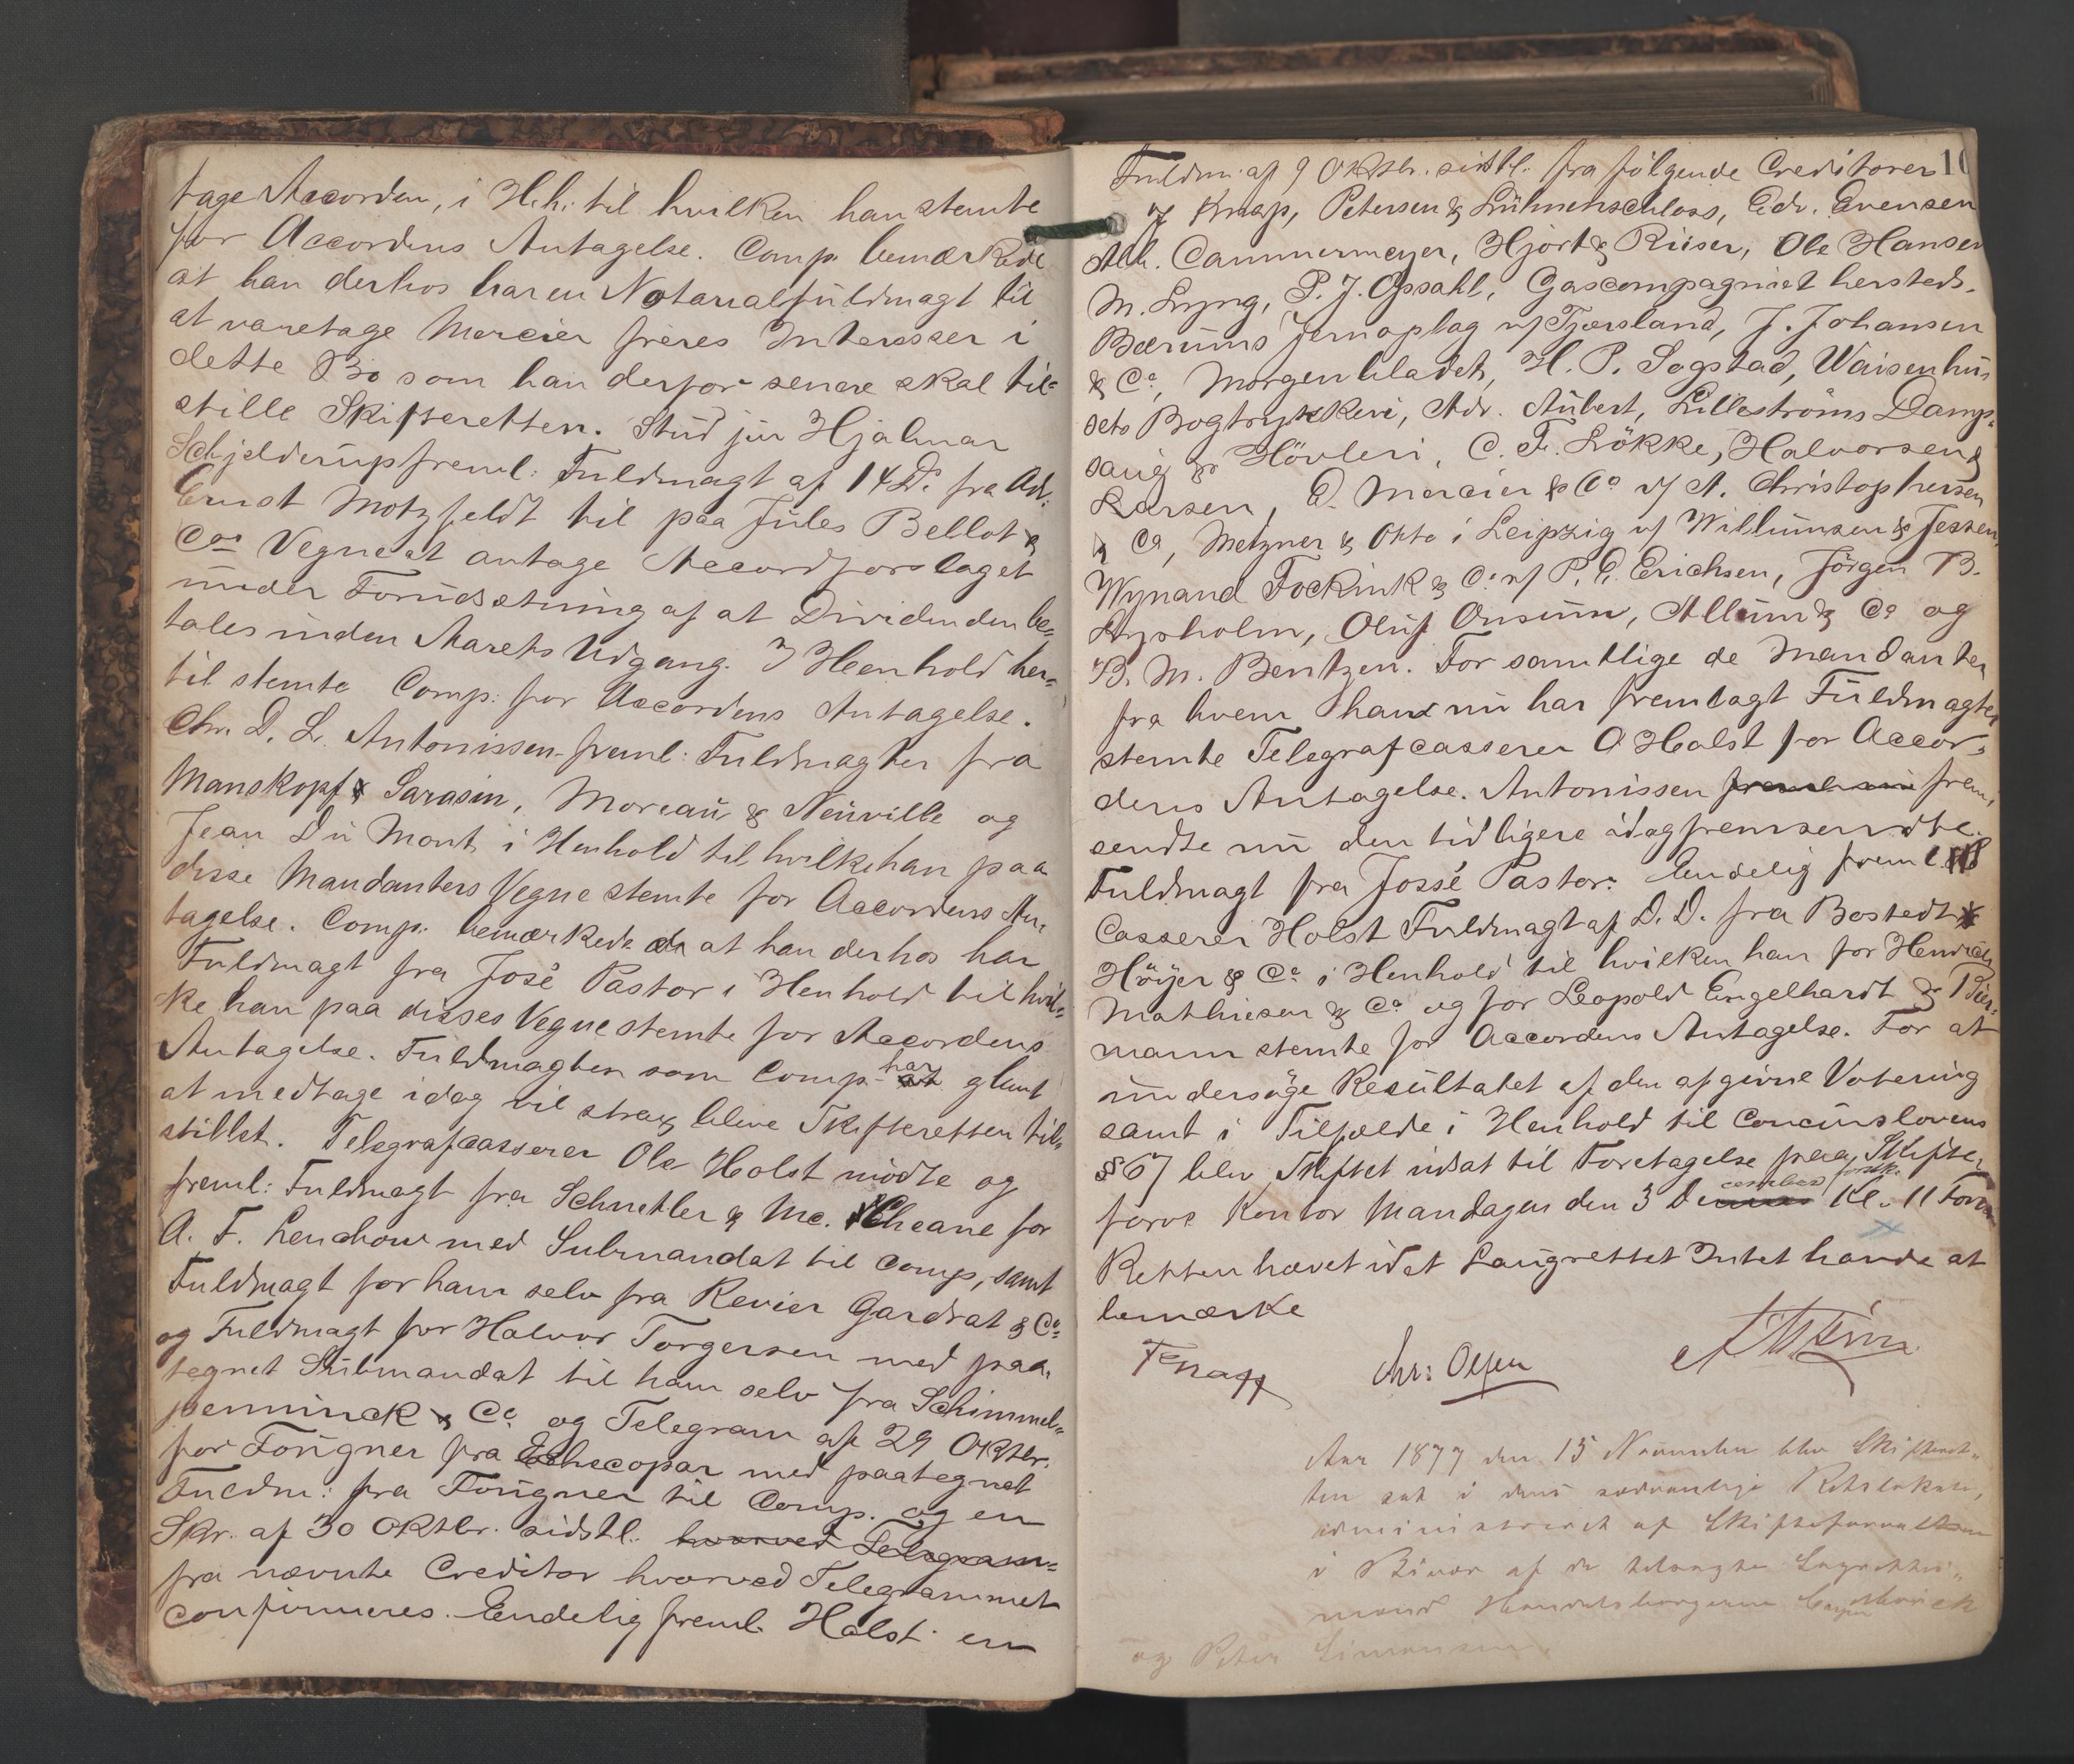 tage Accorden, i H.h. til hvilken han stemte
for Accordens Antagelse. Comp. bemærkede
at han derhos har en Notarialfuldmagt til
at varetage Mercier fréres Interesser i
dette Bo som han derfor senere skal til=
stille Skifteretten. Stud jur Hjalmar
Schjelderup freml: Fuldmagt af 14 Ds. fra Adv:
Ernst Motzfeldt til paa Jules Bellot &
Cos Vegne at antage Accordforslaget
under Forudsætning af at Dividenden be=
tales inden Aarets Udgang. I Henhold her=
til stemte Comp: for Accordens Antagelse.
Chr. D. L. Antonissen freml: Fuldmagter fra
Manskopf & Sarasin, Moreau & Neuville og
Jean Du Mont i Henhold til hvilke han paa
disse Mandanters Vegne stemte for Accordens An=
tagelse. Comp. bemærkede at han derhos har
Fuldmagt fra José Pastor i Henhold til hvil=
ke han paa disses Vegne stemte for Accordens
Antagelse. Fuldmagten som Comp. har glemt
at medtage idag vil strax blive Skifteretten til=
stillet. Telegrafcasserer Ole Holst mödte og
freml: Fuldmagt fra Schnetler & Mc. Cheane for
A. F. Lenchow med Submandat til Comp, samt
Fuldmagt for ham selv fra Revier Gardrat & Co=
og Fuldmagt for Halvor Torgersen med paa=
tegnet Submandat til ham selv fra Schimmel=
penninck & Co og Telegram af 29 Oktbr.
for Fougner fra Echecopar med paategnet
Fuldm: fra Fougner til Comp. og en
Skr. af 30 Oktbr. sidstl. hvorved Telegram=
fra nævnte Creditor hvorved Telegrammet
confirmeres. Endelig freml. Holst en
Fuldm. af 9 Oktbr. sidstl. fra fölgende Creditorer 10
Knap, Petersen & Lühnenschloss, Edv. Evensen
Alb. Cammermeyer, Hjort & Riiser, Ole Hansen
M. Lyng, P. J. Opsahl, Gascompagniet hersteds.
Bærums Jernoplag v/ Fjærsland, J. Johansen
& Co, Morgenbladet, H. P. Sogstad, Waisenhu=
sets Bogtrykkeri, Adr. Aubert, Lilleströms Damp=
saug & Hövleri, C. F. Lökke, Halvorsen &
Larsen, D. Mercier & Co v/ A. Christophersen
& Co, Metzner & Otto i Leipzig v/ Willumsen & Jessen,
Wynand Fockink & Co v/ P. C. Erichsen, Jörgen B.
Lysholm, Oluf Onsum, Allum & Co og
B. M. Bentzen. For samtlige de Mandanter
fra hvem han nu har fremlagt Fuldmagter
stemte Telegrafcasserer O Holst for Accor=
dens Antagelse. Antonissen freml. nu frem=
sendte nu den tidligere idag fremsendte
Fuldmagt fra Jossé Pastor. Endelig freml.
Casserer Holst Fuldmagt af D. D. fra Bostedt
Höyer & Co i Henhold til hvilken han for Henrich
Mathiesen & Co og for Leopold Engelhardt & Bier=
mann stemte for Accordens Antagelse. For at
undersöge Resultatet af den afgivne Votering
samt i Tilfælde i Henhold til Concurslovens
§ 67 blev Skiftet udsat til Foretagelse paa Skifte=
forv. Kontor Mandagen den 3 December Kl. 11 Form
Retten hævet idet Laugrettet Intet havde at
bemærke
Knapp Chr: Olsen
Aar 1877 den 15 November blev Skifteret=
ten sat i dens sædvanlige Retslokale,
administreret af Skifteforvalteren
i Bivær af de tiltagte Lagrettes=
mænd Handelsborgerne
og Peter Simonsen